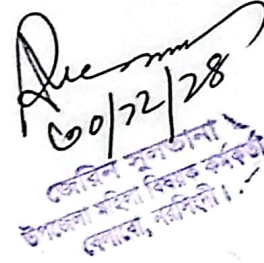 ৩০/১২/২৪
জেরিন সুলতানা
উপজেলা মহিলা বিষয়ক কর্মকর্তা
বেলাবো, নরসিংদী।